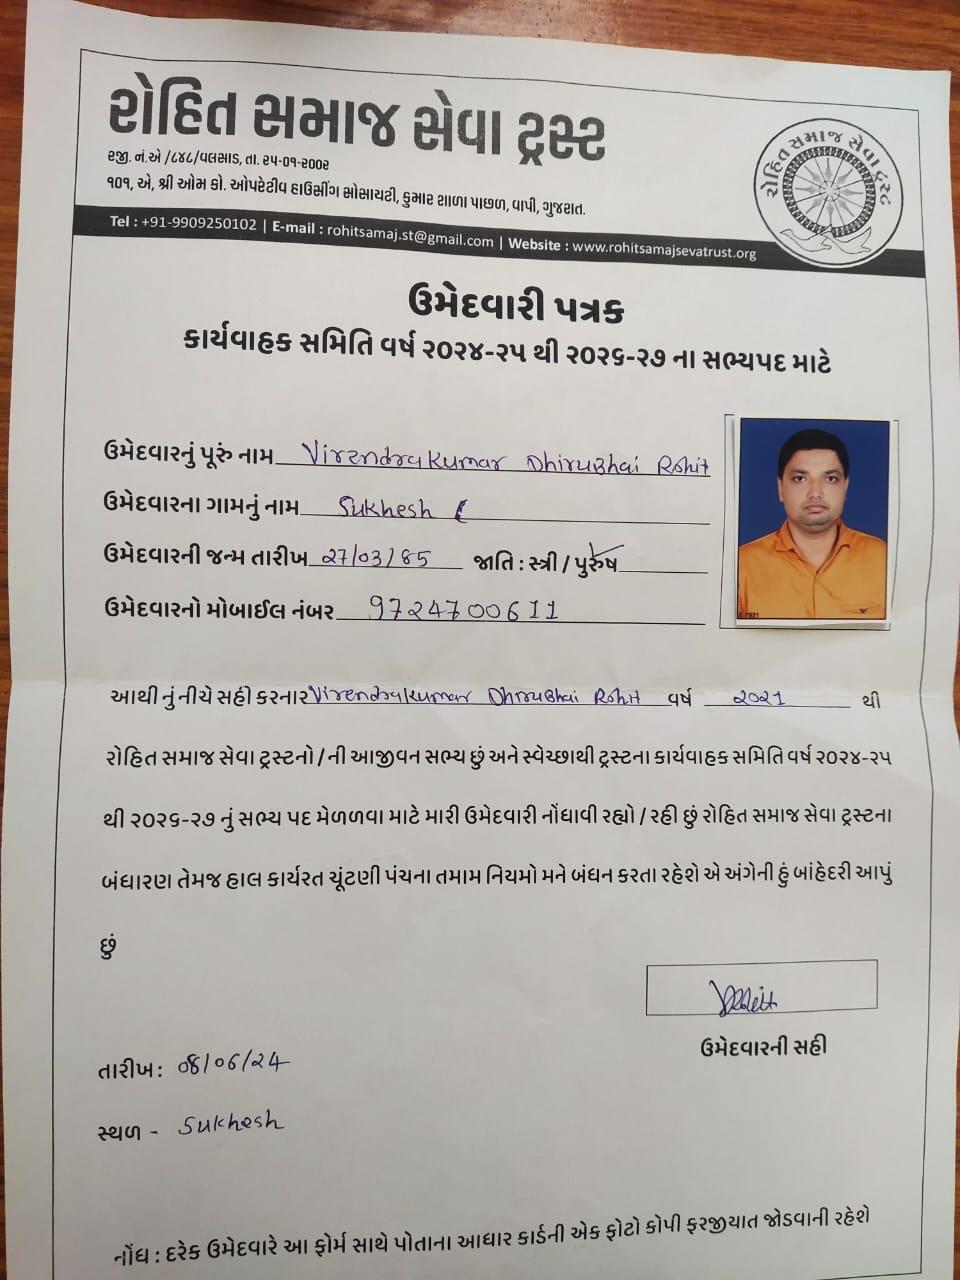 રોહિત સમાજ સેવા ટ્રસ્ટ
રજી. નં.એ /૮૪૮/વલસાડ, તા. ૨૫-૦૧-૨૦૦૨
૧૦૧, એ, શ્રી ઓમ કો. ઓપરેટીવ હાઉસીંગ સોસાયટી, કુમાર શાળા પાછળ, વાપી, ગુજરાત.
Tel : +91-9909250102 | E-mail : rohitsamaj.st@gmail.com | Website : www.rohitsamajsevatrust.org
રોહિત સમાજ સેવા ટ્રસ્ટ
ઉમેદવારી પત્રક
કાર્યવાહક સમિતિ વર્ષ ૨૦૨૪-૨૫ થી ૨૦૨૬-૨૭ ના સભ્યપદ માટે
ઉમેદવારનું પૂરું નામ Virendrakumar Dhirubhai Rohit
ઉમેદવારના ગામનું નામ Sukhesh
ઉમેદવારની જન્મ તારીખ 27/03/85 જાતિ : સ્ત્રી / પુરુષ
ઉમેદવારનો મોબાઈલ નંબર 9724700611
આથી નું નીચે સહી કરનાર Virendrakumar Dhirubhai Rohit વર્ષ 2021 થી
રોહિત સમાજ સેવા ટ્રસ્ટનો / ની આજીવન સભ્ય છું અને સ્વેચ્છાથી ટ્રસ્ટના કાર્યવાહક સમિતિ વર્ષ ૨૦૨૪-૨૫
થી ૨૦૨૬-૨૭ નું સભ્ય પદ મેળળવા માટે મારી ઉમેદવારી નોંધાવી રહ્યો / રહી છું રોહિત સમાજ સેવા ટ્રસ્ટના
બંધારણ તેમજ હાલ કાર્યરત ચૂંટણી પંચના તમામ નિયમો મને બંધન કરતા રહેશે એ અંગેની હું બાંહેદરી આપું
છું
ઉમેદવારની સહી
તારીખ : 08/06/24
સ્થળ - Sukhesh
નોંધ : દરેક ઉમેદવારે આ ફોર્મ સાથે પોતાના આધાર કાર્ડની એક ફોટો કોપી ફરજીયાત જોડવાની રહેશે